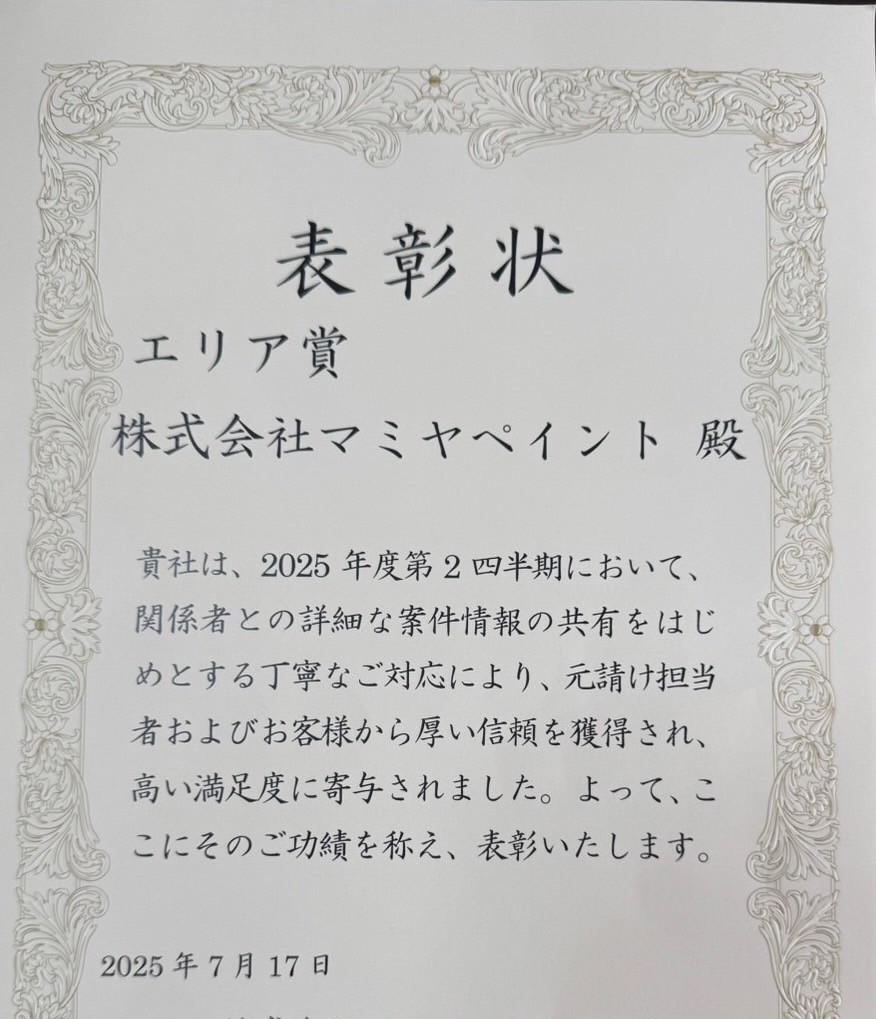 表彰状
エリア賞
株式会社マミヤペイント 殿
貴社は、2025 年度第 2 四半期において、
関係者との詳細な案件情報の共有をはじ
めとする丁寧なご対応により、元請け担当
者およびお客様から厚い信頼を獲得され、
高い満足度に寄与されました。よって、こ
こにそのご功績を称え、表彰いたします。
2025 年 7 月 17 日